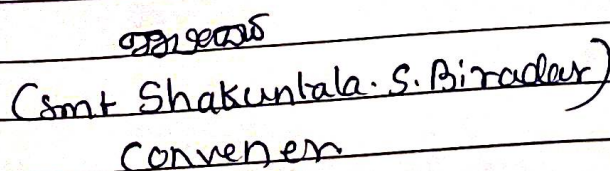 (Smt Shakuntala. S. Biradar)
Convener